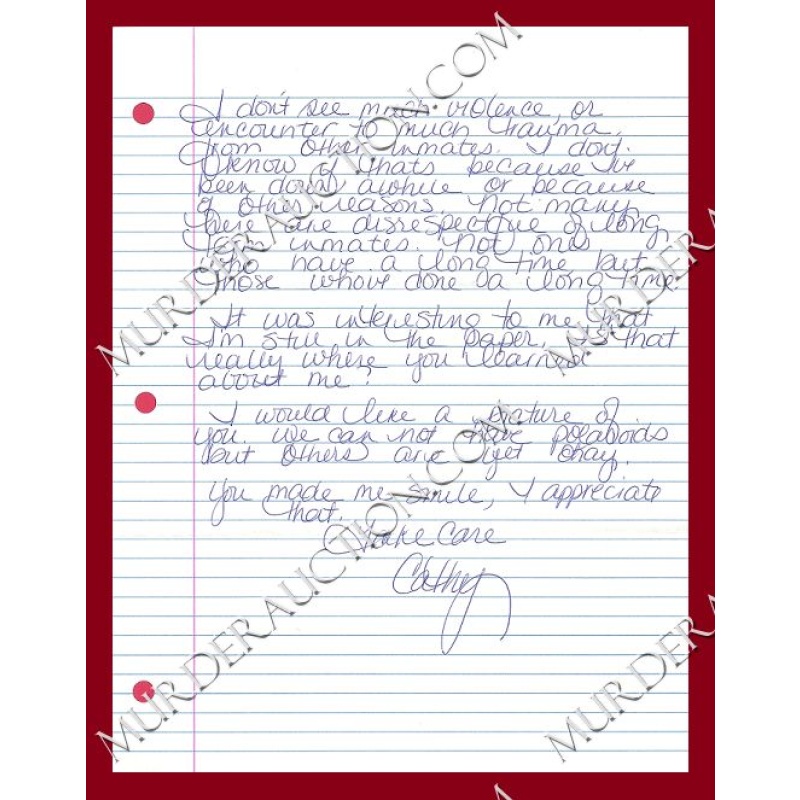 I don't see much violence, or
encounter to much trauma,
from other inmates. I don't
know if thats because I've
been down awhile or because
of other reasons. Not many
here are disrespectful of long
term inmates. Not ones
who have a long time but
those whove done a long time.
It was interesting to me that
I'm still in the paper. Is that
really where you learned
about me?
I would like a picture of
you. We can not have polaroids
but others are yet okay.
You made me smile, I appreciate
that.
Take Care
Cathy
MURDERAUCTION.COM
MURDERAUCTION.COM
MURDERAUCTION.COM
MURDERAUCTION.COM